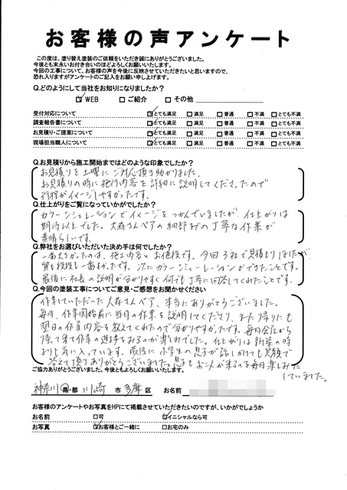 お客様の声アンケート
この度は、塗り替え塗装のご依頼をいただき誠にありがとうございました。
今後とも末永いお付き合いのほどよろしくお願いいたします。
今回の工事について、お客様の声を今後に反映させていただきたいと思いますので、
恐れ入りますがアンケートのご記入をお願い申し上げます。
Q.どのようにして当社をお知りになりましたか?
☑WEB □ご紹介 □その他
受付対応について ☑とても満足 □満足 □普通 □不満 □とても不満
調査報告書について ☑とても満足 □満足 □普通 □不満 □とても不満
お見積り・ご提案について ☑とても満足 □満足 □普通 □不満 □とても不満
現場担当職人について ☑とても満足 □満足 □普通 □不満 □とても不満
Q.お見積りから施工開始まではどのような印象でしたか?
お見積りを土曜にご対応頂き助かりました。
お見積りの時に施行内容を詳細に説明してくださったので
イメージしやすかったです。
Q.仕上がりをご覧になっていかがでしたか?
カラーシュミレーションでイメージをつかんでいましたが、仕上がりは
期待以上でした。大森さんペアの細部までの丁寧な作業が
素晴らしいです。
Q.弊社をお選びいただいた決め手は何でしたか?
一番大きかったのは、施工内容とお値段です。今回3社で見積もりしましたが
一番よかったです。次にカラーシュミレーションができたことです。
最後に社長の説明が分かりやすく何でも丁寧に回答してくれたことです。
Q.今回の塗装工事についてご意見・ご感想をお聞かせください
作業していただいた大森さんペア、本当にありがとうございました。
毎日、作業開始前に当日の作業を説明してくださり、また帰りにも
翌日の作業内容を教えてくれたので分かりやすかったです。毎日会社から
帰って来て作業の進捗をみるのが楽しみでした。仕上がりは新築の時
よりも気に入っています。最後に小学生の息子が話しかけても笑顔で
答えて頂きありがとうございました。息子もお二人が来るのを毎日楽しみに
していました。
ご協力ありがとうございました。今後ともよろしくお願いいたします。
神奈川 県・都 川崎 市 多摩 区 お名前
お客様のアンケートやお写真をHPに掲載させていただきたいのですが、いかがでしょうか
お名前 □可 ☑イニシャルなら可
お写真 ☑お客様とご一緒に □お宅のみ